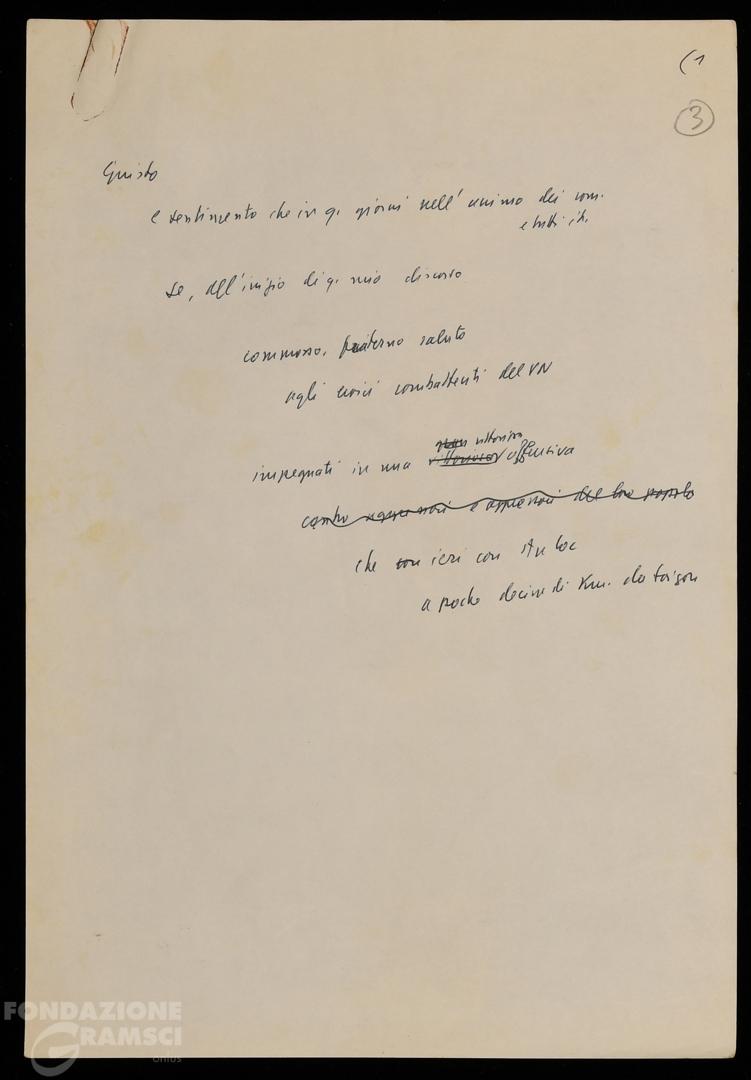 (1
3
Giusto
e sentimento che in q. giorni nell'animo dei com.
e tutti it.
se, all'inizio di q. mio discorso
commosso, fraterno saluto
agli eroici combattenti del VN
impegnati in una vittoriosa offensiva
contro aggressori e oppressori del loro popolo
che ieri con An Loc
a poche decine di Km. da Saigon
FONDAZIONE
GRAMSCI
onlus